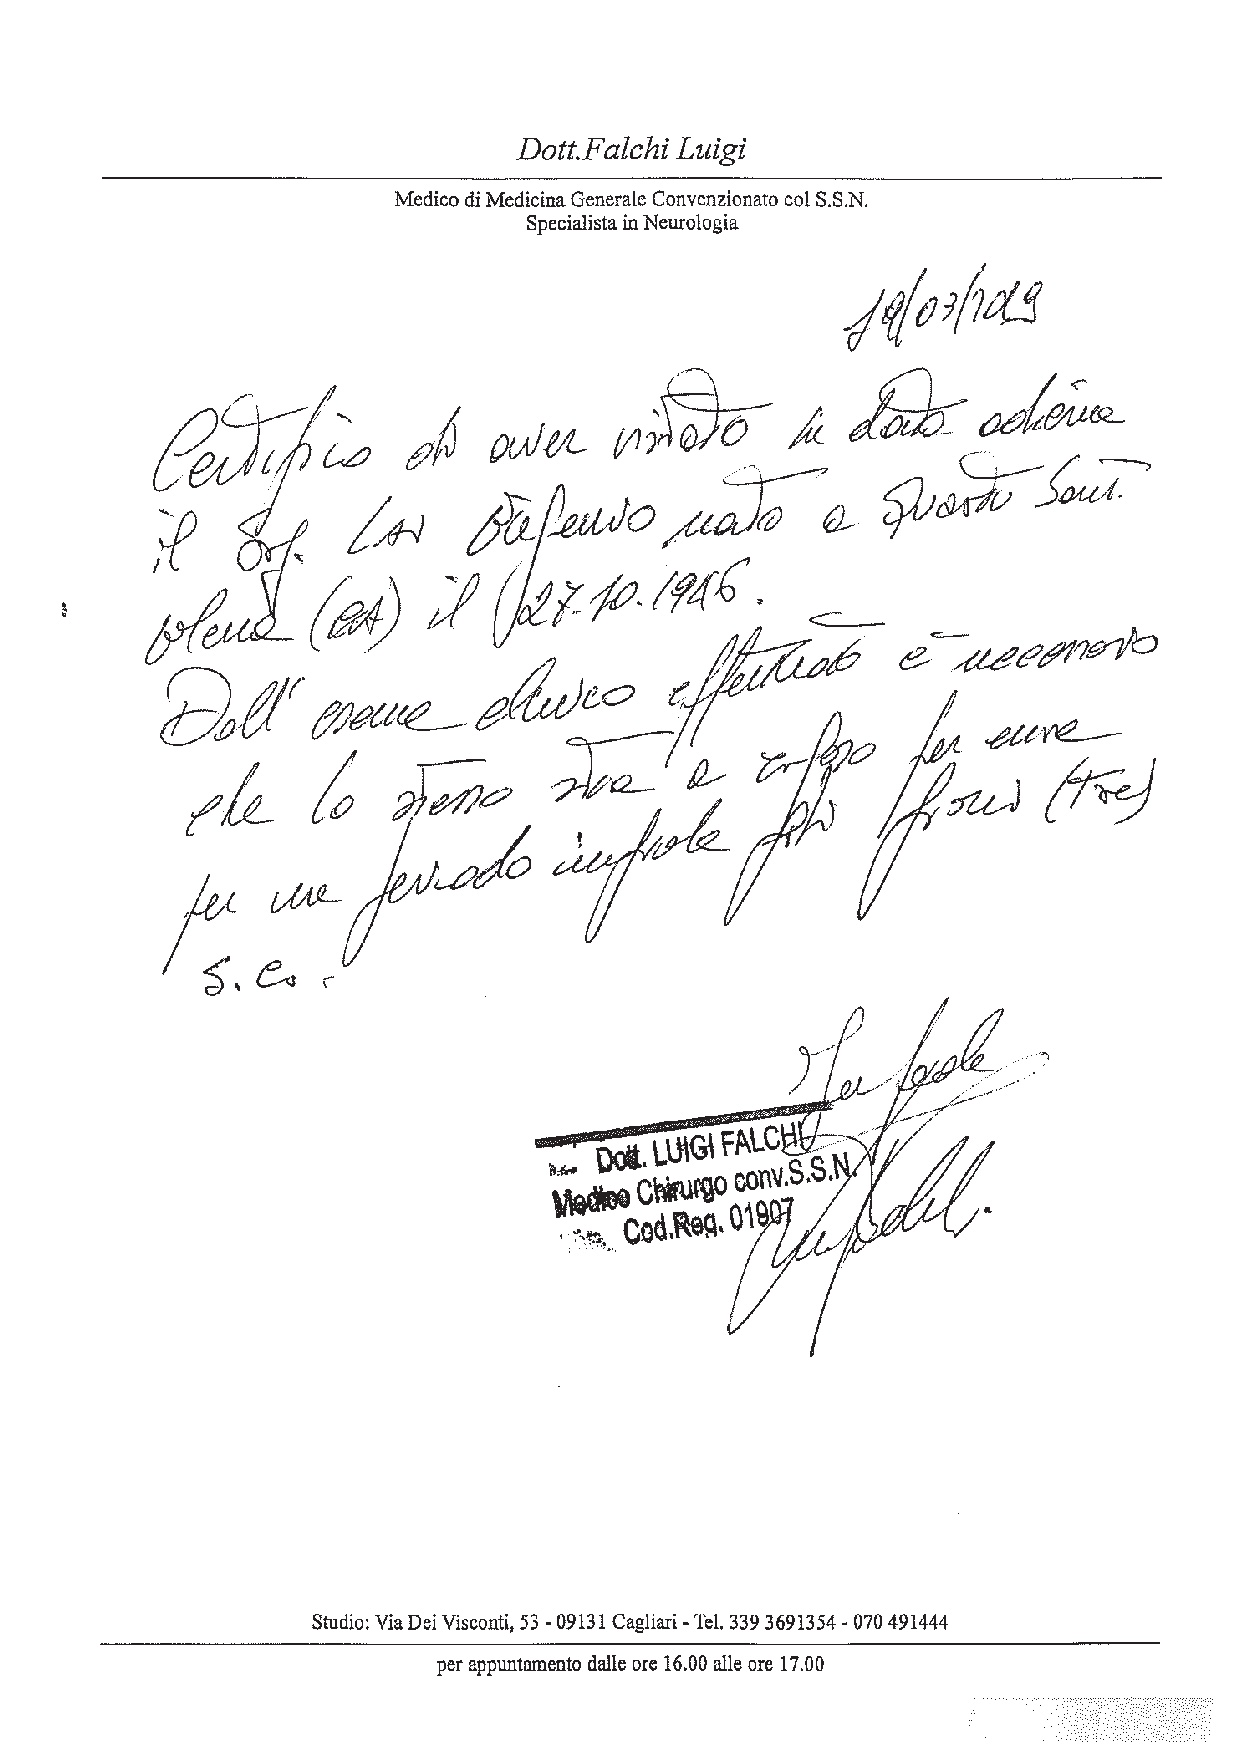 Dott.Falchi Luigi
Medico di Medicina Generale Convenzionato col S.S.N.
Specialista in Neurologia
19/03/2019
Certifico di aver visitato in data odierna
il Sig. Lai Efisio nato a Quartu Sant.
Elena (CA) il 27.10.1946.
Dall' esame clinico effettuato è necessario
che lo stesso stia a riposo per cure
per un periodo di giorni (tre)
S.C.
In fede
Dott. LUIGI FALCHI
Medico Chirurgo conv.S.S.N.
Cod.Reg. 01907
Studio: Via Dei Visconti, 53 - 09131 Cagliari - Tel. 339 3691354 - 070 491444
per appuntamento dalle ore 16.00 alle ore 17.00